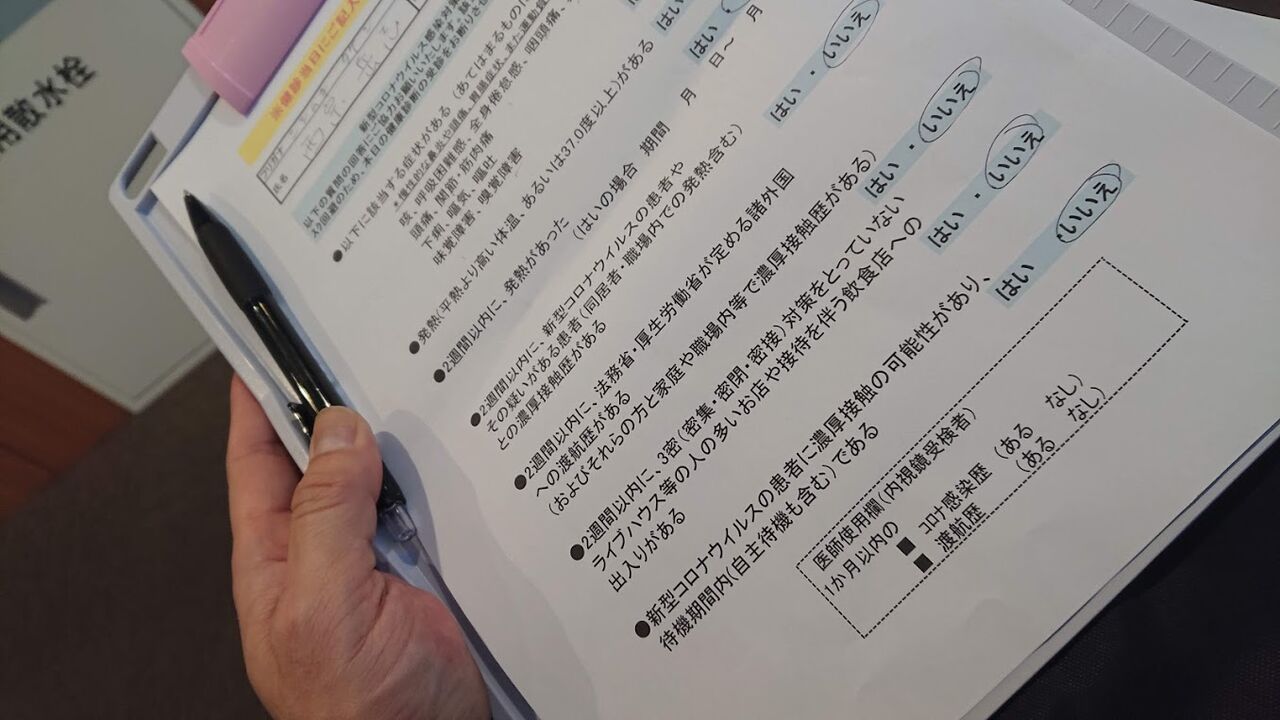 用散水栓
※健診当日にご記入
フリガナ
氏名
新型コロナウイルス感染
以下の質問の回答にご協力お願いいたします。
ため、本日の健康診断の受診をお断りさせ
●以下に該当する症状がある（あてはまるものに
＊慢性的な鼻炎や頭痛、胃腸症状、また運動
咳、呼吸困難感、全身倦怠感、咽頭痛、
頭痛、関節・筋肉痛
下痢、嘔気、嘔吐
味覚障害、嗅覚障害
●発熱（平熱より高い体温、あるいは37.0度以上）がある
はい・いいえ
●2週間以内に、発熱があった
（はいの場合 期間 月 日～ 月
●2週間以内に、新型コロナウイルスの患者や
その疑いがある患者（同居者・職場内での発熱含む）
との濃厚接触歴がある
はい・いいえ
●2週間以内に、法務省・厚生労働省が定める諸外国
への渡航歴がある
（およびそれらの方と家庭や職場内等で濃厚接触歴がある）
はい・いいえ
●2週間以内に、3密（密集・密閉・密接）対策をとっていない
ライブハウス等の人の多いお店や接待を伴う飲食店への
出入りがある
はい・いいえ
●新型コロナウイルスの患者に濃厚接触の可能性があり、
待機期間内（自主待機も含む）である
はい・いいえ
医師使用欄（内視鏡受検者）
1か月以内の
■ コロナ感染歴 （ある なし）
■ 渡航歴 （ある なし）